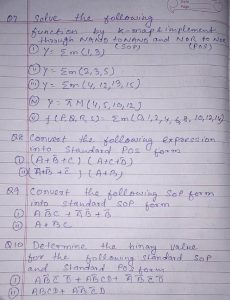 Q7 Solve the following
function by K-map & implement
through NAND to NAND and NOR to NOR
(SOP) (POS)
(i) Y = Σm(1,3)
(ii) Y = Σm(2,3,5)
(iii) Y = Σm(4,12,13,15)
(iv) Y = πM(4,5,10,12)
(v) f(P,Q,R,S) = Σm(0,1,2,4,6,8,10,12,14)
Q8 Convert the following expression
into Standard POS form
(i) (A+B+C) (A+C+B̅)
(ii) (A+B̅+C) (A+B)
Q9 Convert the following SOP form
into standard SOP form
(i) AB̅C + A̅B + B
(ii) A + BC
Q10 Determine the binary value
for the following standard SOP
and Standard POS form
(i) AB̅C̅D + ABCD + AB̅C̅D
(ii) ABCD + AB̅C̅D